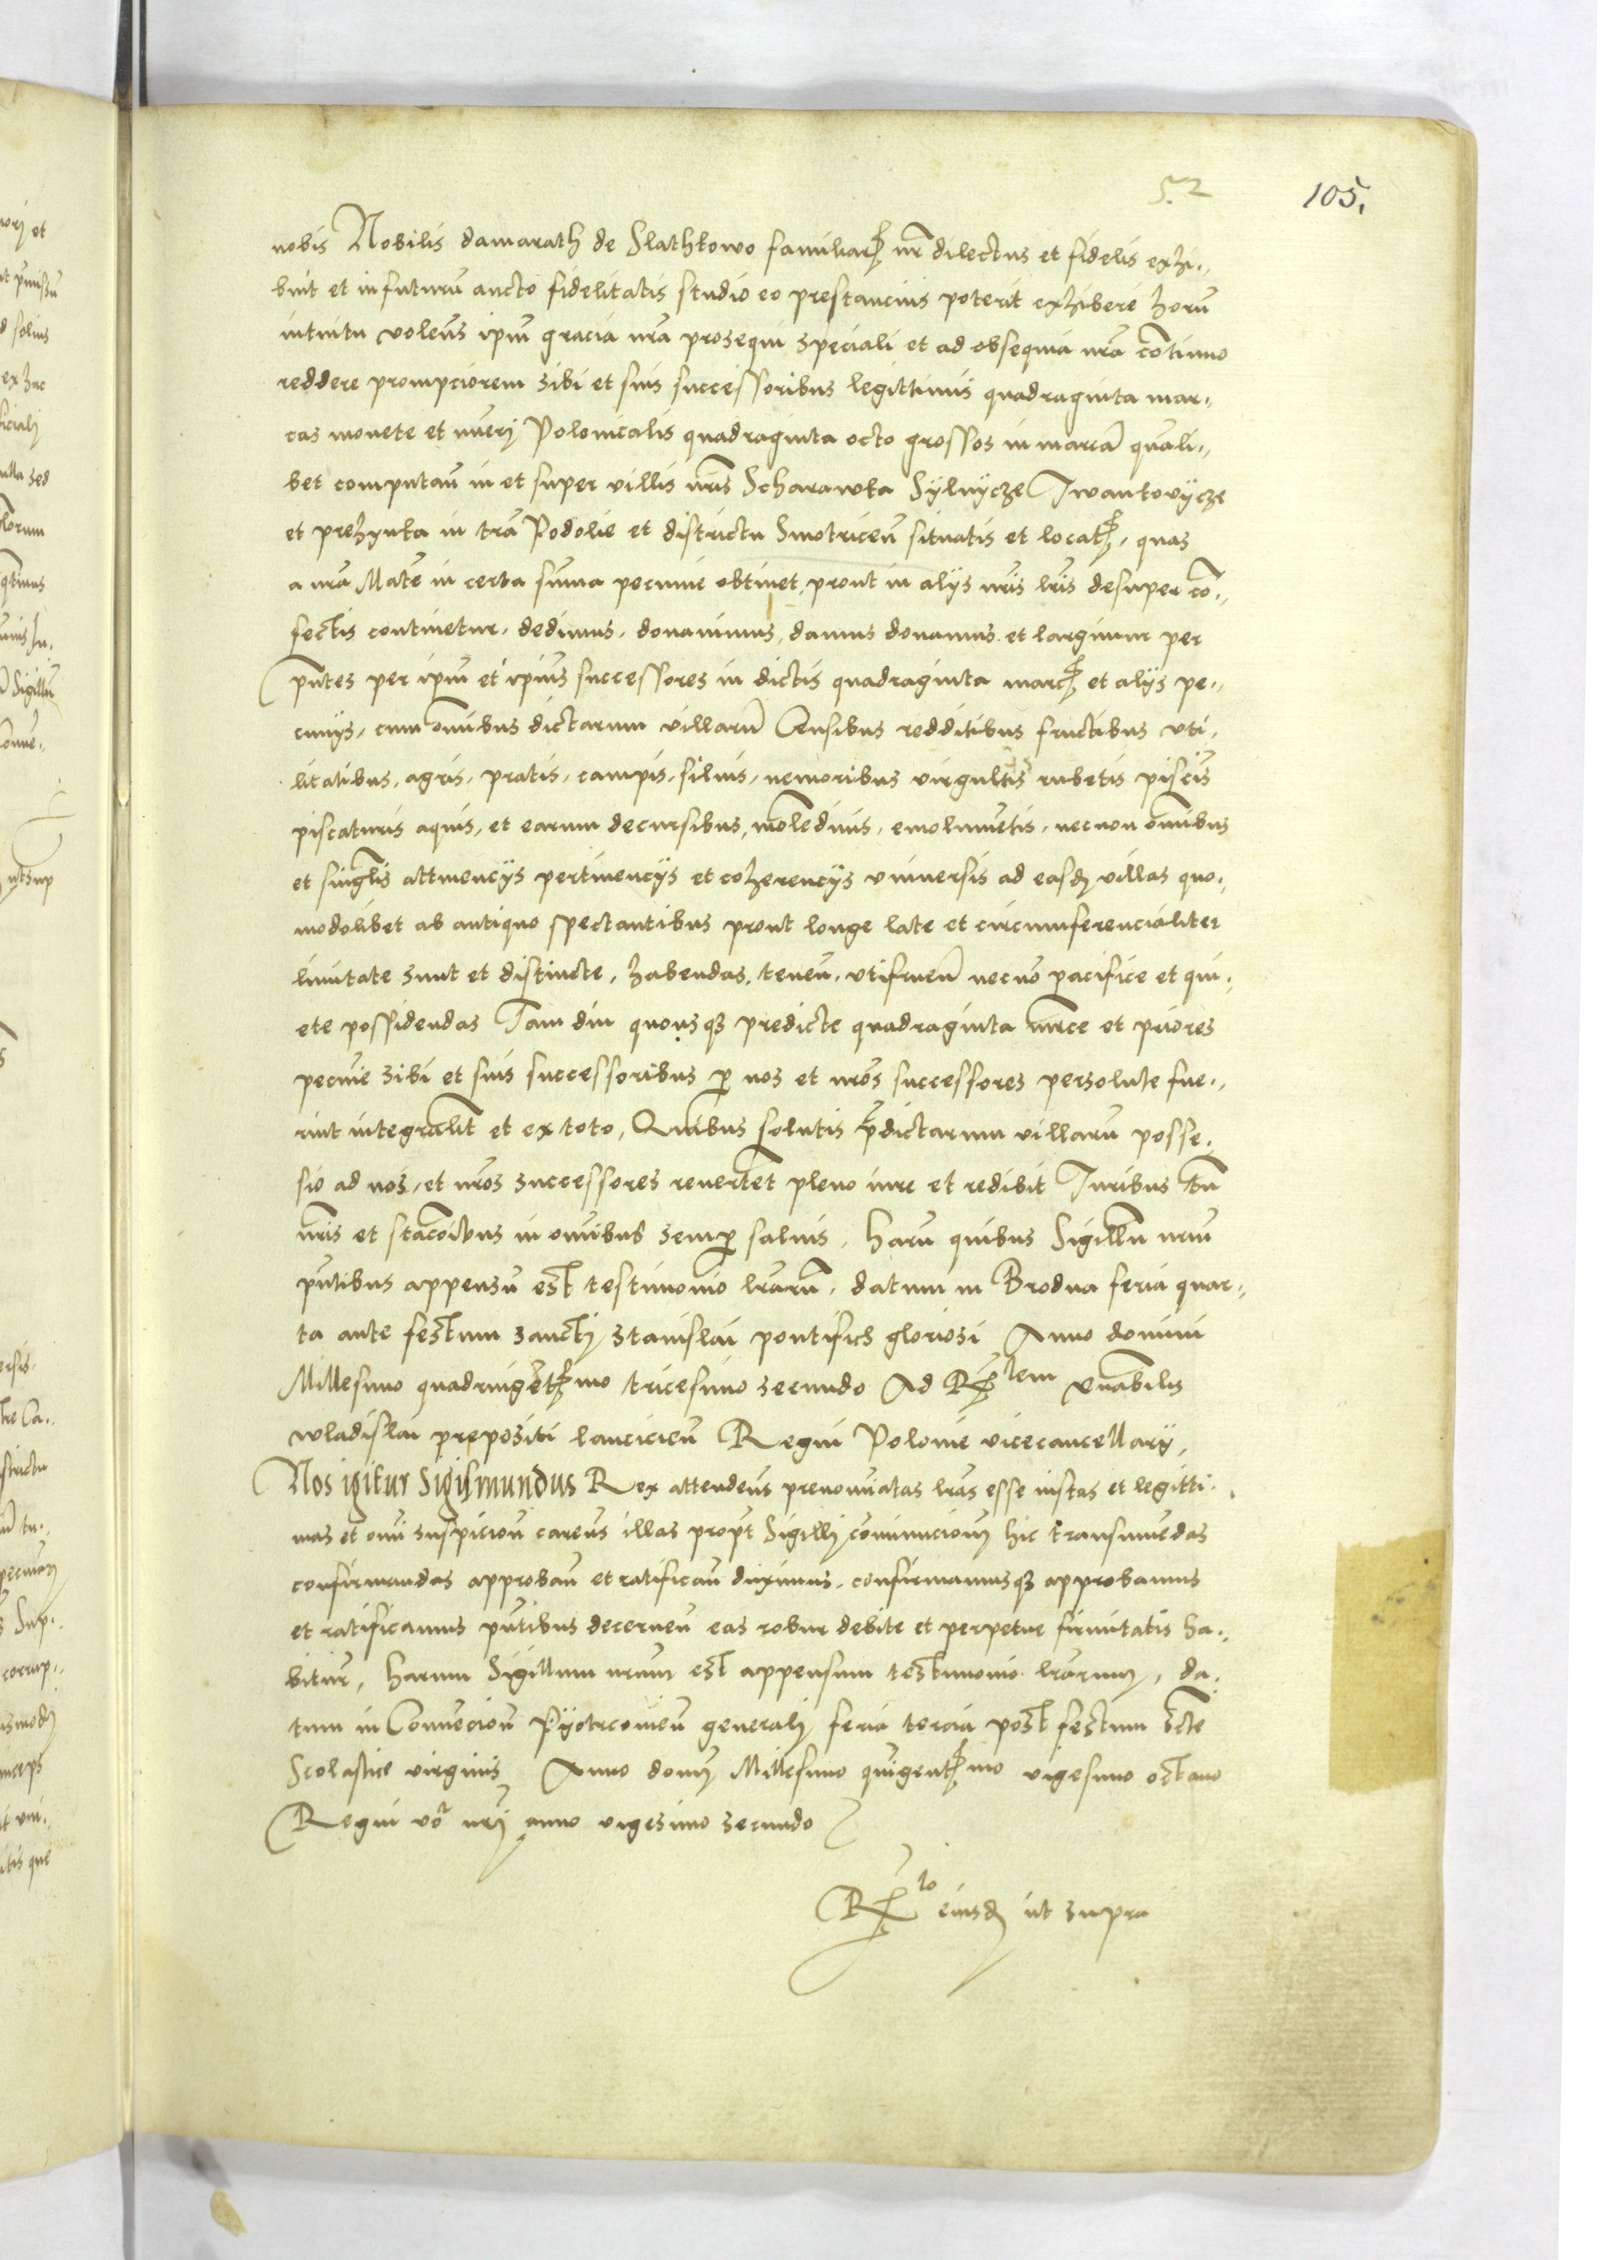 52 105.
nobis Nobilis damarath de Slathkowo familiar nr dilectus et fidelis exhi-
buit et in futurū aucto fidelitatis studio eo prestancius poterit exhibere horū
intuitu volens ipm gracia nra prosequi speciali et ad obsequia nra cōtinuo
reddere prompciorem sibi et suis successoribus legittimis quadraginta mar-
cas monete et nūeri Polonicalis quadraginta octo grossos in marcā quāli-
bet computan in et super villis nris Scharawka Sylnycze Iwankovycze
et prehynka in tra Podolie et districtu Smotricen situatis et locat, quas
a nra Mate in certa summa pecunie obtinet, prout in alijs nris lris desuper cō-
fectis continetur, dedimus, donavimus, damus donamus et largimur per
pntes per ipm et ipius successores in dictis quadraginta marc et alijs pe-
cunijs, cum omnibus dictarum villarū Censibus redditibus fructibus uti-
litatibus, agris, pratis, campis, silvis, nemoribus virgultis rubetis piscis
piscaturis aquis, et earum decursibus, molendinis, emolumētis, necnon omībus
et singlis attinencijs pertinencijs et coherencijs vniversis ad easd villas quo-
modolibet ab antiquo spectantibus prout longe late et circumferencialiter
limitate sunt et distincte, habendas, tenen, utifruen necno pacifice et qui-
ete possidendas Tam diu quousq predicte quadraginta mrce et priores
pecunie sibi et suis successoribus p nos et nros successores persolute fue-
rint integralit et ex toto, Quibus solutis pdictarum villarū posse-
sio ad nos, et nros successores revertet pleno iure et redibit Iuribus tn
nris et stacoibus in omnibus semp salvis, harū quibus Sigillū nrm
pntibus appensū est testimonio lrarū, datum in Brodna feria quar-
ta ante festum sancti stanislai pontificis gloriosi Anno domini
Millesimo quadringētmo tricesimo secundo Ad Rlem venabilis
wladislai prepositi lancicien Regni Polonie vicecancellarij,
Nos igitur Sigismundus Rex attendens prenominatas lras esse iustas et legitti-
mas et omni suspicion carens illas propt Sigilli cōminucionem hic transumēdas
confirmandas approban et ratifican duximus, confirmamusq approbamus
et ratificamus pntibus decernen eas robur debite et perpetue firmitatis ha-
bitur, harum Sigillum nrum est appensum testimonio lrarum, da-
tum in Convecion Pyotrcovien generali feria tercia post festum scte
Scolastice virginis Anno domi Millesimo quingentmo vigesimo octavo
Regni vo nri anno vigesimo secundo
Rto eiusd ut supra